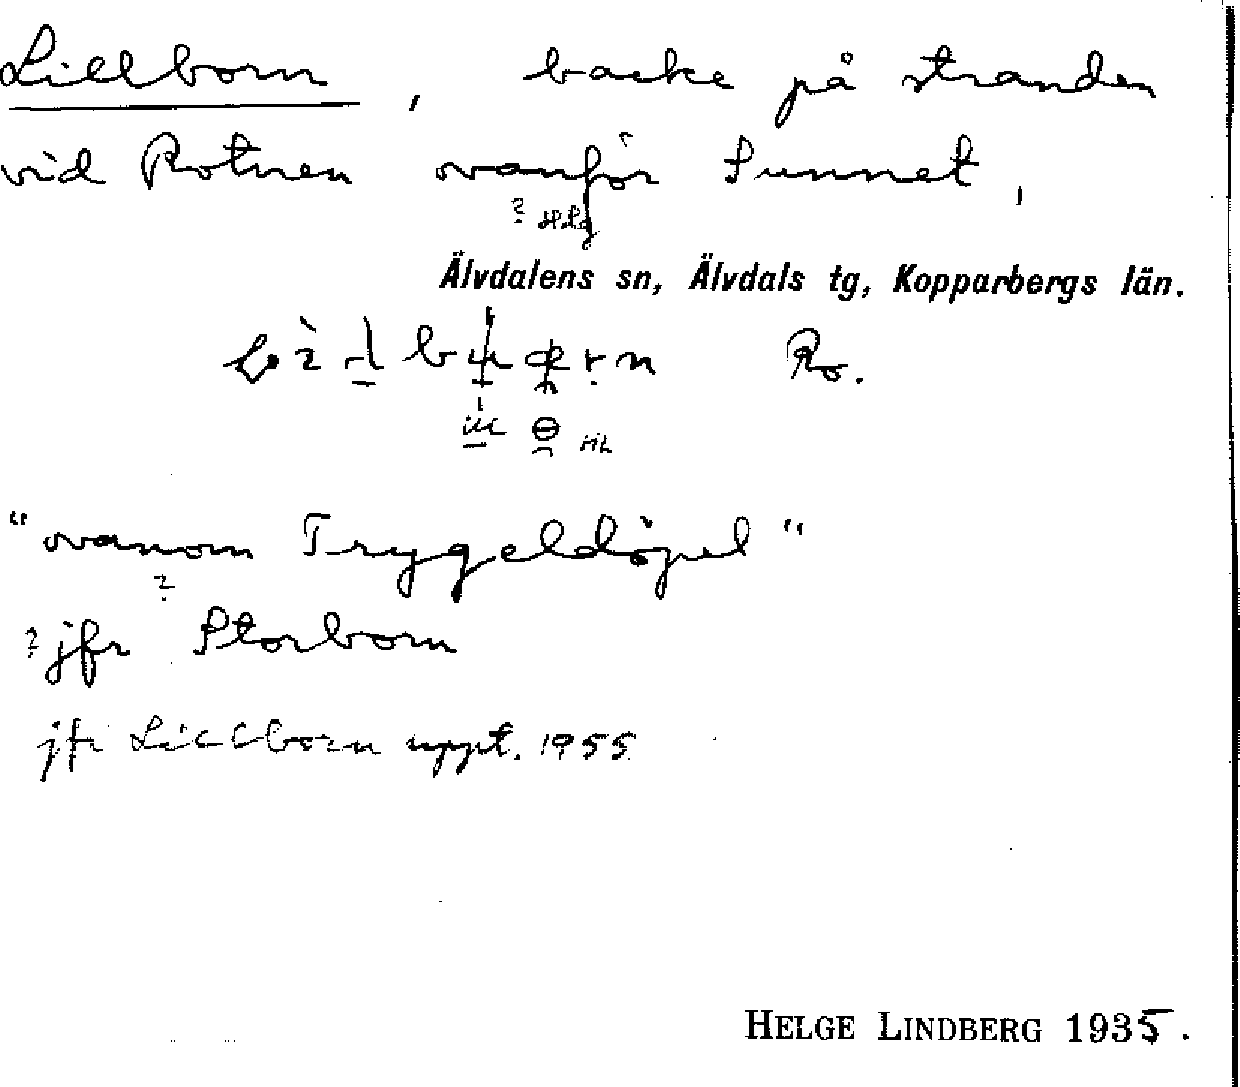 Lillborn, backe på stranden
vid Rotnen ovanför Sunnet,
?
Älvdalens sn, Älvdals tg, Kopparbergs län.
Ro.
HL
"ovanom Tryggeldöpel"
?
? jfr Storborn
jfr Lillborn uppt. 1955
HELGE LINDBERG 1935.